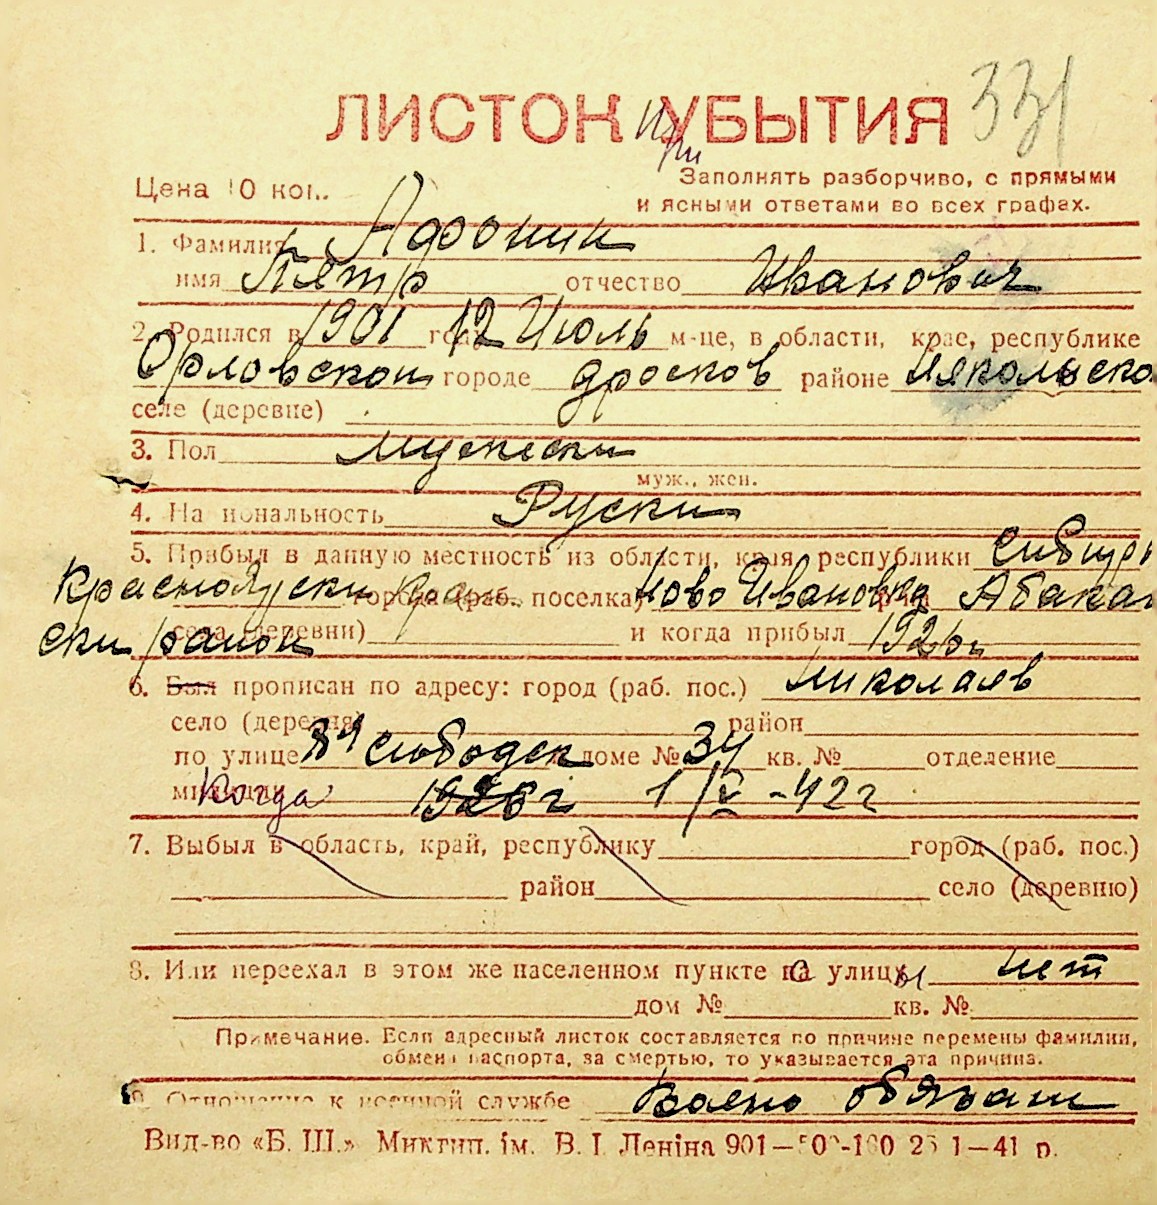 331
ЛИСТОК при УБЫТИЯ
Цена 10 коп.
Заполнять разборчиво, с прямыми
и ясными ответами во всех графах.
1. Фамилия Афонин
имя Пятр отчество Иванович
2. Родился в 1901 году 12 Июль м-це, в области, крае, республике
Орловской городе дросков районе Никольско
селе (деревне)
3. Пол мужески
муж., жен.
4. Национальность Руски
5. Прибыл в данную местность из области, края, республики Сибирь
Красноярски Края города (раб. поселка) Ново Ивановка Абакан
ски район села (деревни) и когда прибыл 1926г
6. Был прописан по адресу: город (раб. пос.) Николаев
село (деревня) район
по улице слободск доме № 34 кв. № отделение
милиции Когда 1926г 1/V-42г
7. Выбыл в область, край, республику город (раб. пос.)
район село (деревню)
8. Или переехал в этом же населенном пункте с улицы нет
дом № кв. №
Примечание. Если адресный листок составляется по причине перемены фамилии,
обмена паспорта, за смертью, то указывается эта причина.
9. Отношение к военной службе Воено обязан
Вид-во «Б. Ш.» Миктип. ім. В. І. Леніна 901—50 1—41 р.